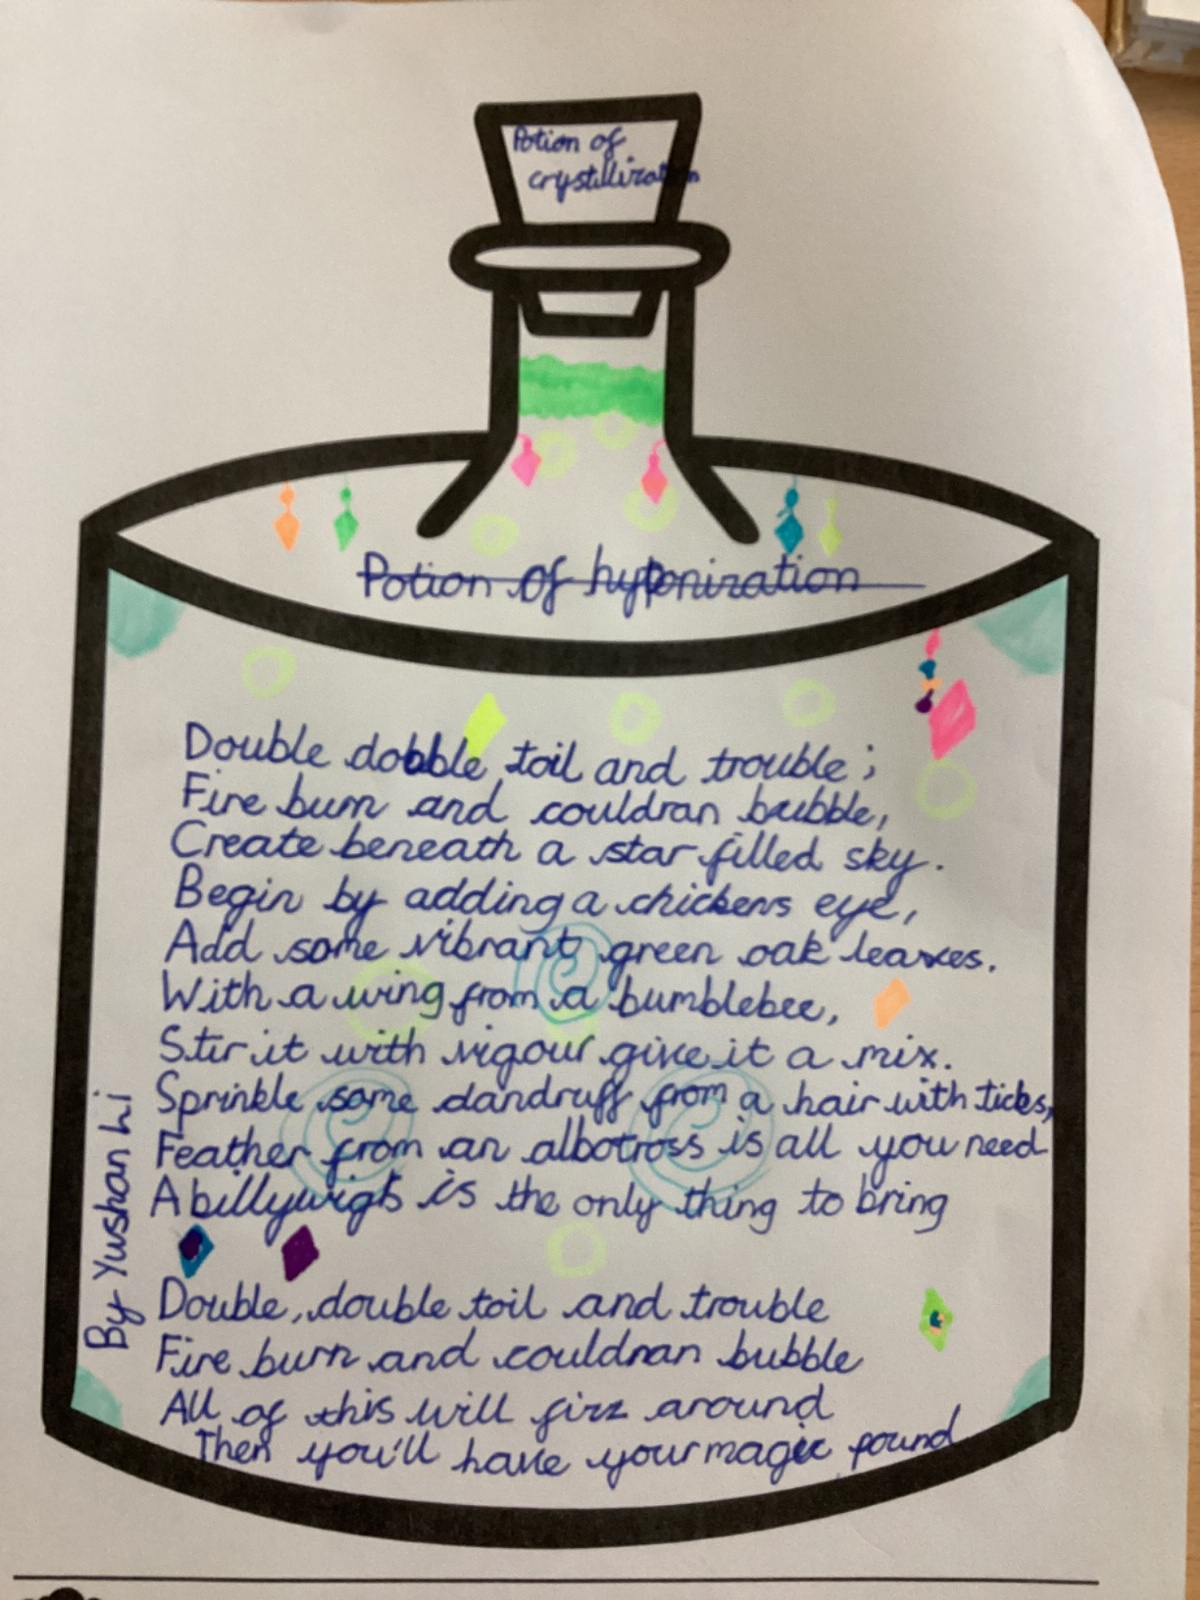 Potion of
crystillization
Potion of hyponization
Double dobble toil and trouble;
Fire burn and couldran bubble,
Create beneath a star filled sky.
Begin by adding a chickens eye,
Add some vibrant green oak leaves.
With a wing from a bumblebee,
Stir it with vigour give it a mix.
Sprinkle some dandruff from a hair with ticks,
Feather from an albotross is all you need
A billywigs is the only thing to bring
Double, double toil and trouble
Fire burn and couldran bubble
All of this will fizz around
Then you'll have your magic pound
By Yushan Li